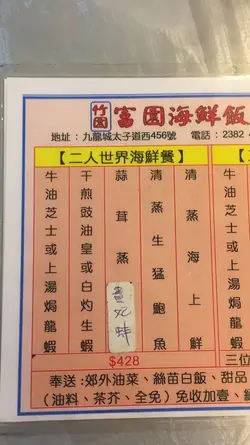 竹園
富園海鮮飯
地址：九龍城太子道西456號 電話：2382
【二人世界海鮮餐】
清蒸海上鮮
清蒸生猛鮑魚
蒜茸蒸貴妃蚌
干煎豉油皇或白灼生蝦
牛油芝士或上湯焗龍蝦
$428
三位
奉送：郊外油菜、絲苗白飯、甜品
（油料、茶芥、全免）免收加壹、